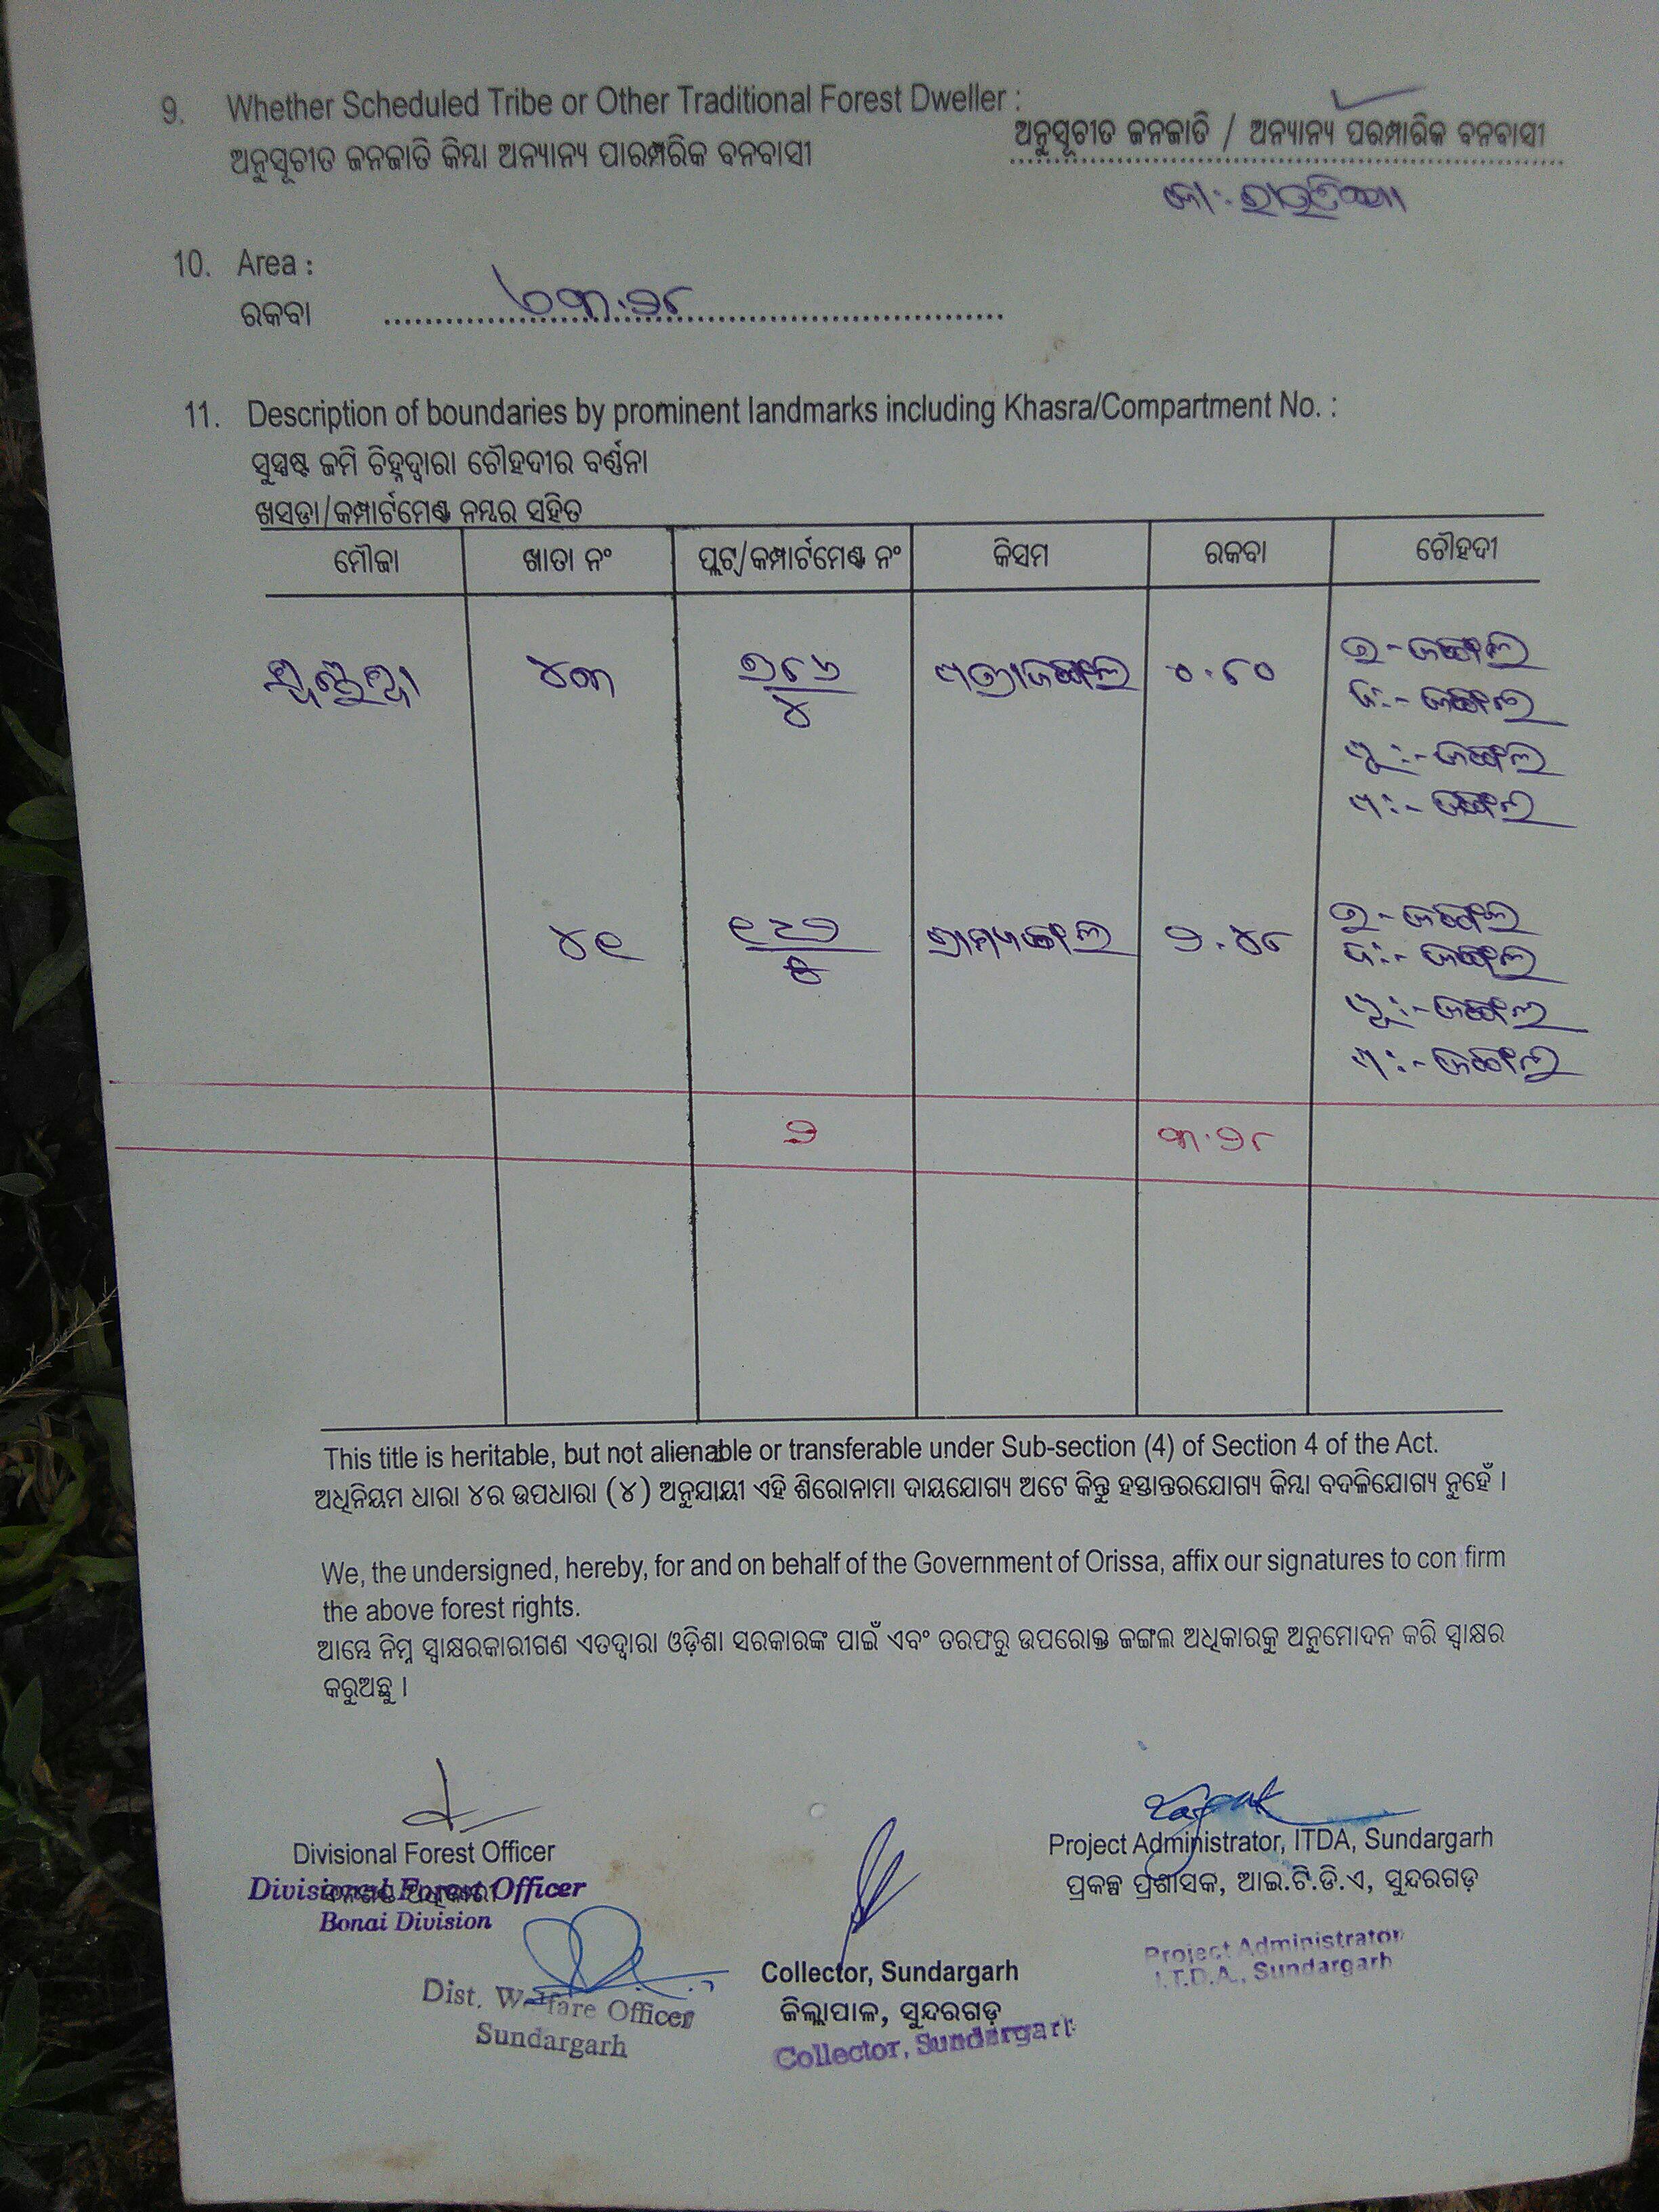 9. Whether Scheduled Tribe or Other Traditional Forest Dweller :
ଅନୁସୂଚୀତ ଜନଜାତି କିମ୍ବା ଅନ୍ୟାନ୍ୟ ପାରମ୍ପରିକ ବନବାସୀ
ଅନୁସୂଚୀତ ଜନଜାତି / ଅନ୍ୟାନ୍ୟ ପରମ୍ପାରିକ ବନବାସୀ
10. Area :
ରକବା
୩.୨୮
11. Description of boundaries by prominent landmarks including Khasra/Compartment No. :
ସୁସ୍ପଷ୍ଟ ଜମି ଚିହ୍ନଦ୍ୱାରା ଚୌହଦୀର ବର୍ଣ୍ଣନା
ଖସଡ଼ା/କମ୍ପାର୍ଟମେଣ୍ଟ ନମ୍ବର ସହିତ
ମୌଜା ଖାତା ନଂ ପ୍ଲଟ୍/କମ୍ପାର୍ଟମେଣ୍ଟ ନଂ କିସମ ରକବା ଚୌହଦୀ
୪୩ ୭୮୬/୪ ପତ୍ରାଜଙ୍ଗଲ ୦.୮୦ ଉ-ଜଙ୍ଗଲ
ଦ:-ଜଙ୍ଗଲ
ପୂ:-ଜଙ୍ଗଲ
ପ:-ଜଙ୍ଗଲ
୪୯ ଗ୍ରାମ୍ୟଜଙ୍ଗଲ ୨.୪୮ ଉ-ଜଙ୍ଗଲ
ଦ:-ଜଙ୍ଗଲ
ପୂ:-ଜଙ୍ଗଲ
ପ:-ଜଙ୍ଗଲ
୨ ୩.୨୮
This title is heritable, but not alienable or transferable under Sub-section (4) of Section 4 of the Act.
ଅଧିନିୟମ ଧାରା ୪ର ଉପଧାରା (୪) ଅନୁଯାୟୀ ଏହି ଶିରୋନାମା ଦାୟଯୋଗ୍ୟ ଅଟେ କିନ୍ତୁ ହସ୍ତାନ୍ତରଯୋଗ୍ୟ କିମ୍ବା ବଦଳିଯୋଗ୍ୟ ନୁହେଁ ।
We, the undersigned, hereby, for and on behalf of the Government of Orissa, affix our signatures to confirm
the above forest rights.
ଆମ୍ଭେ ନିମ୍ନ ସ୍ୱାକ୍ଷରକାରୀଗଣ ଏତଦ୍ୱାରା ଓଡ଼ିଶା ସରକାରଙ୍କ ପାଇଁ ଏବଂ ତରଫରୁ ଉପରୋକ୍ତ ଜଙ୍ଗଲ ଅଧିକାରକୁ ଅନୁମୋଦନ କରି ସ୍ୱାକ୍ଷର
କରୁଅଛୁ ।
Divisional Forest Officer
Divisional Forest Officer
Bonai Division
Dist. Welfare Officer
Sundargarh
Collector, Sundargarh
ଜିଲ୍ଲାପାଳ, ସୁନ୍ଦରଗଡ଼
Collector, Sundargarh
Project Administrator, ITDA, Sundargarh
ପ୍ରକଳ୍ପ ପ୍ରଶାସକ, ଆଇ.ଟି.ଡି.ଏ, ସୁନ୍ଦରଗଡ଼
Project Administrator
I.T.D.A., Sundargarh